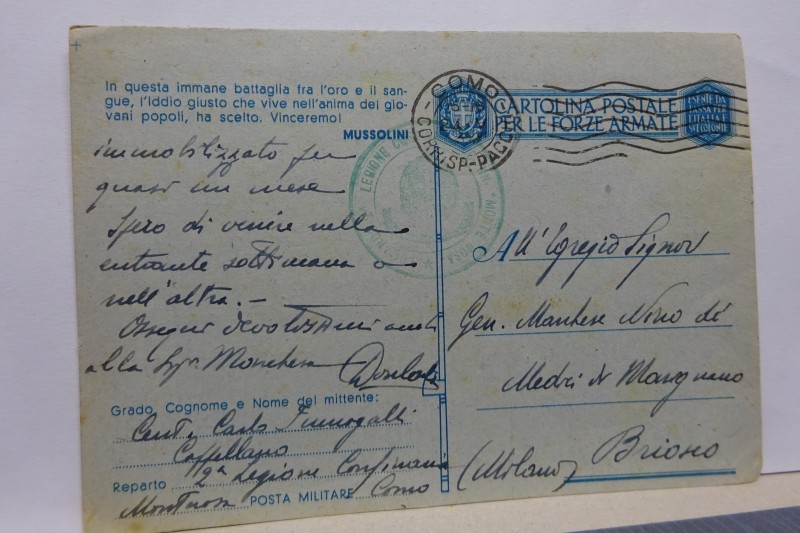 In questa immane battaglia fra l'oro e il san-
gue, l'Iddio giusto che vive nell'anima dei gio-
vani popoli, ha scelto. Vinceremo!
MUSSOLINI
immobilizzato per
quasi un mese
Spero di venire nella
entrante settimana o
nell'altra. —
Ossequi devotissimi anche
alla Sig.ra Marchesa
Grado, Cognome e Nome del mittente:
Cent. Carlo Fumagalli
Cappellano
Reparto 2ª Legione Confinaria
Monterosa POSTA MILITARE Como
COMO
CORRISP.-PACCHI
LEGIONE
MONTE ROSA
CARTOLINA POSTALE
PER LE FORZE ARMATE
ESENTE DA
TASSA PER
L'ITALIA E
All'Egregio Signor
Gen. Marchese Nino di
Medici di Marignano
Briosco
(Milano)